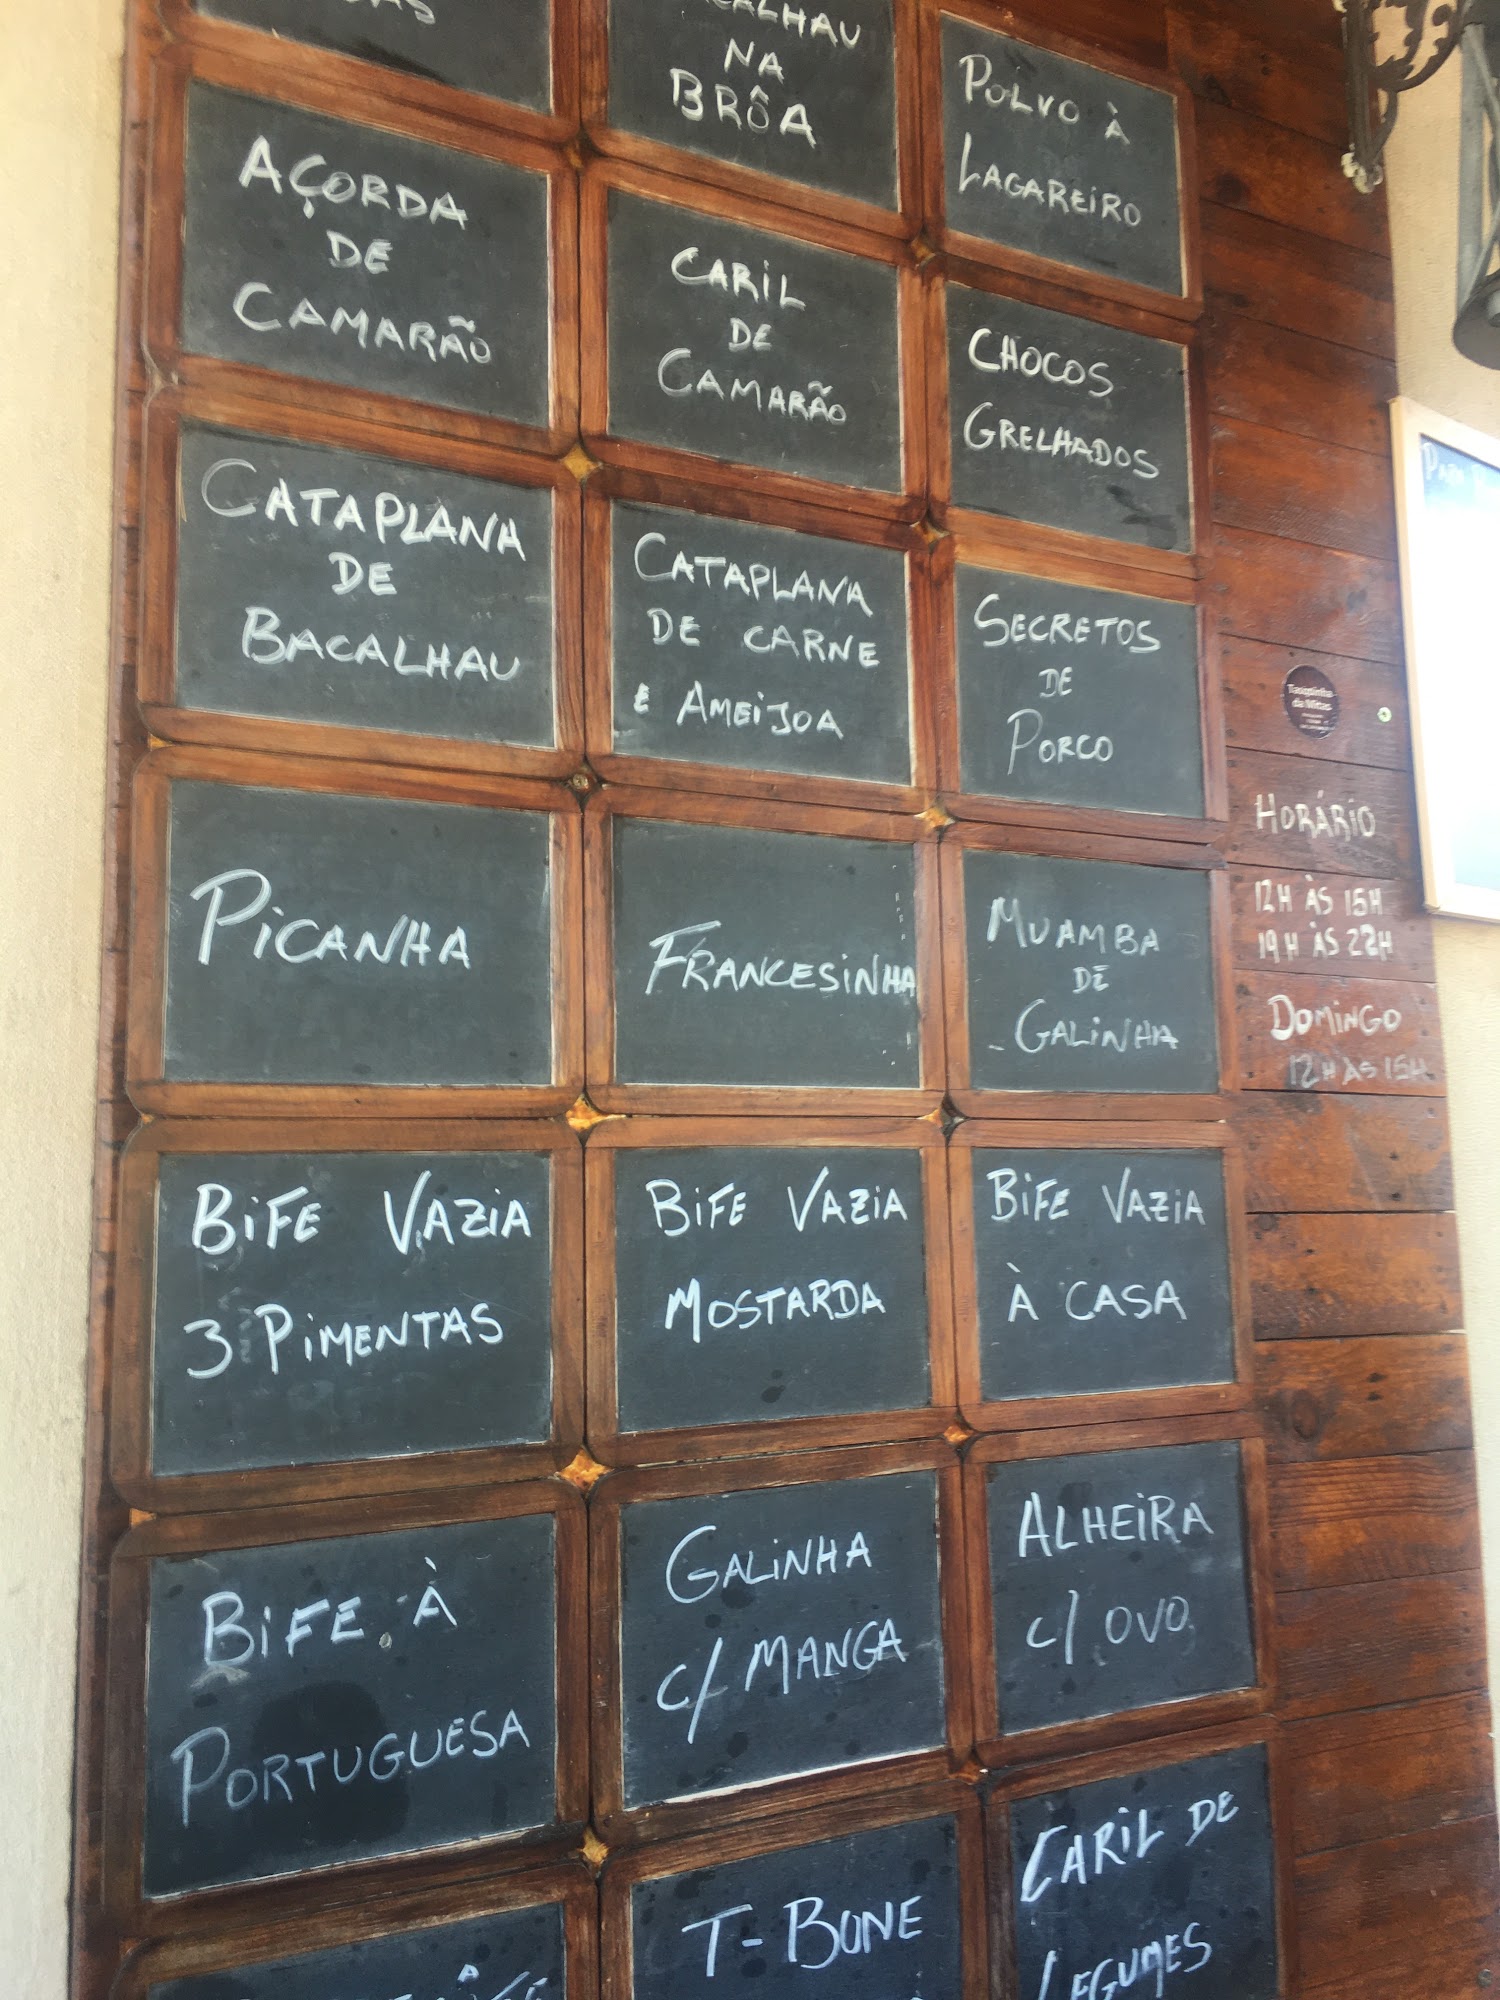 NA
BRÔA
POLVO À
LAGAREIRO
AÇORDA
DE
CAMARÃO
CARIL
DE
CAMARÃO
CHOCOS
GRELHADOS
CATAPLANA
DE
BACALHAU
CATAPLANA
DE CARNE
E AMEIJOA
SECRETOS
DE
PORCO
PICANHA
FRANCESINHA
MUAMBA
DE
GALINHA
BIFE VAZIA
3 PIMENTAS
BIFE VAZIA
MOSTARDA
BIFE VAZIA
À CASA
BIFE À
PORTUGUESA
GALINHA
C/ MANGA
ALHEIRA
C/ OVO
T-BONE
CARIL DE
LEGUMES
HORÁRIO
12H ÀS 15H
19H ÀS 22H
DOMINGO
12H ÀS 15H